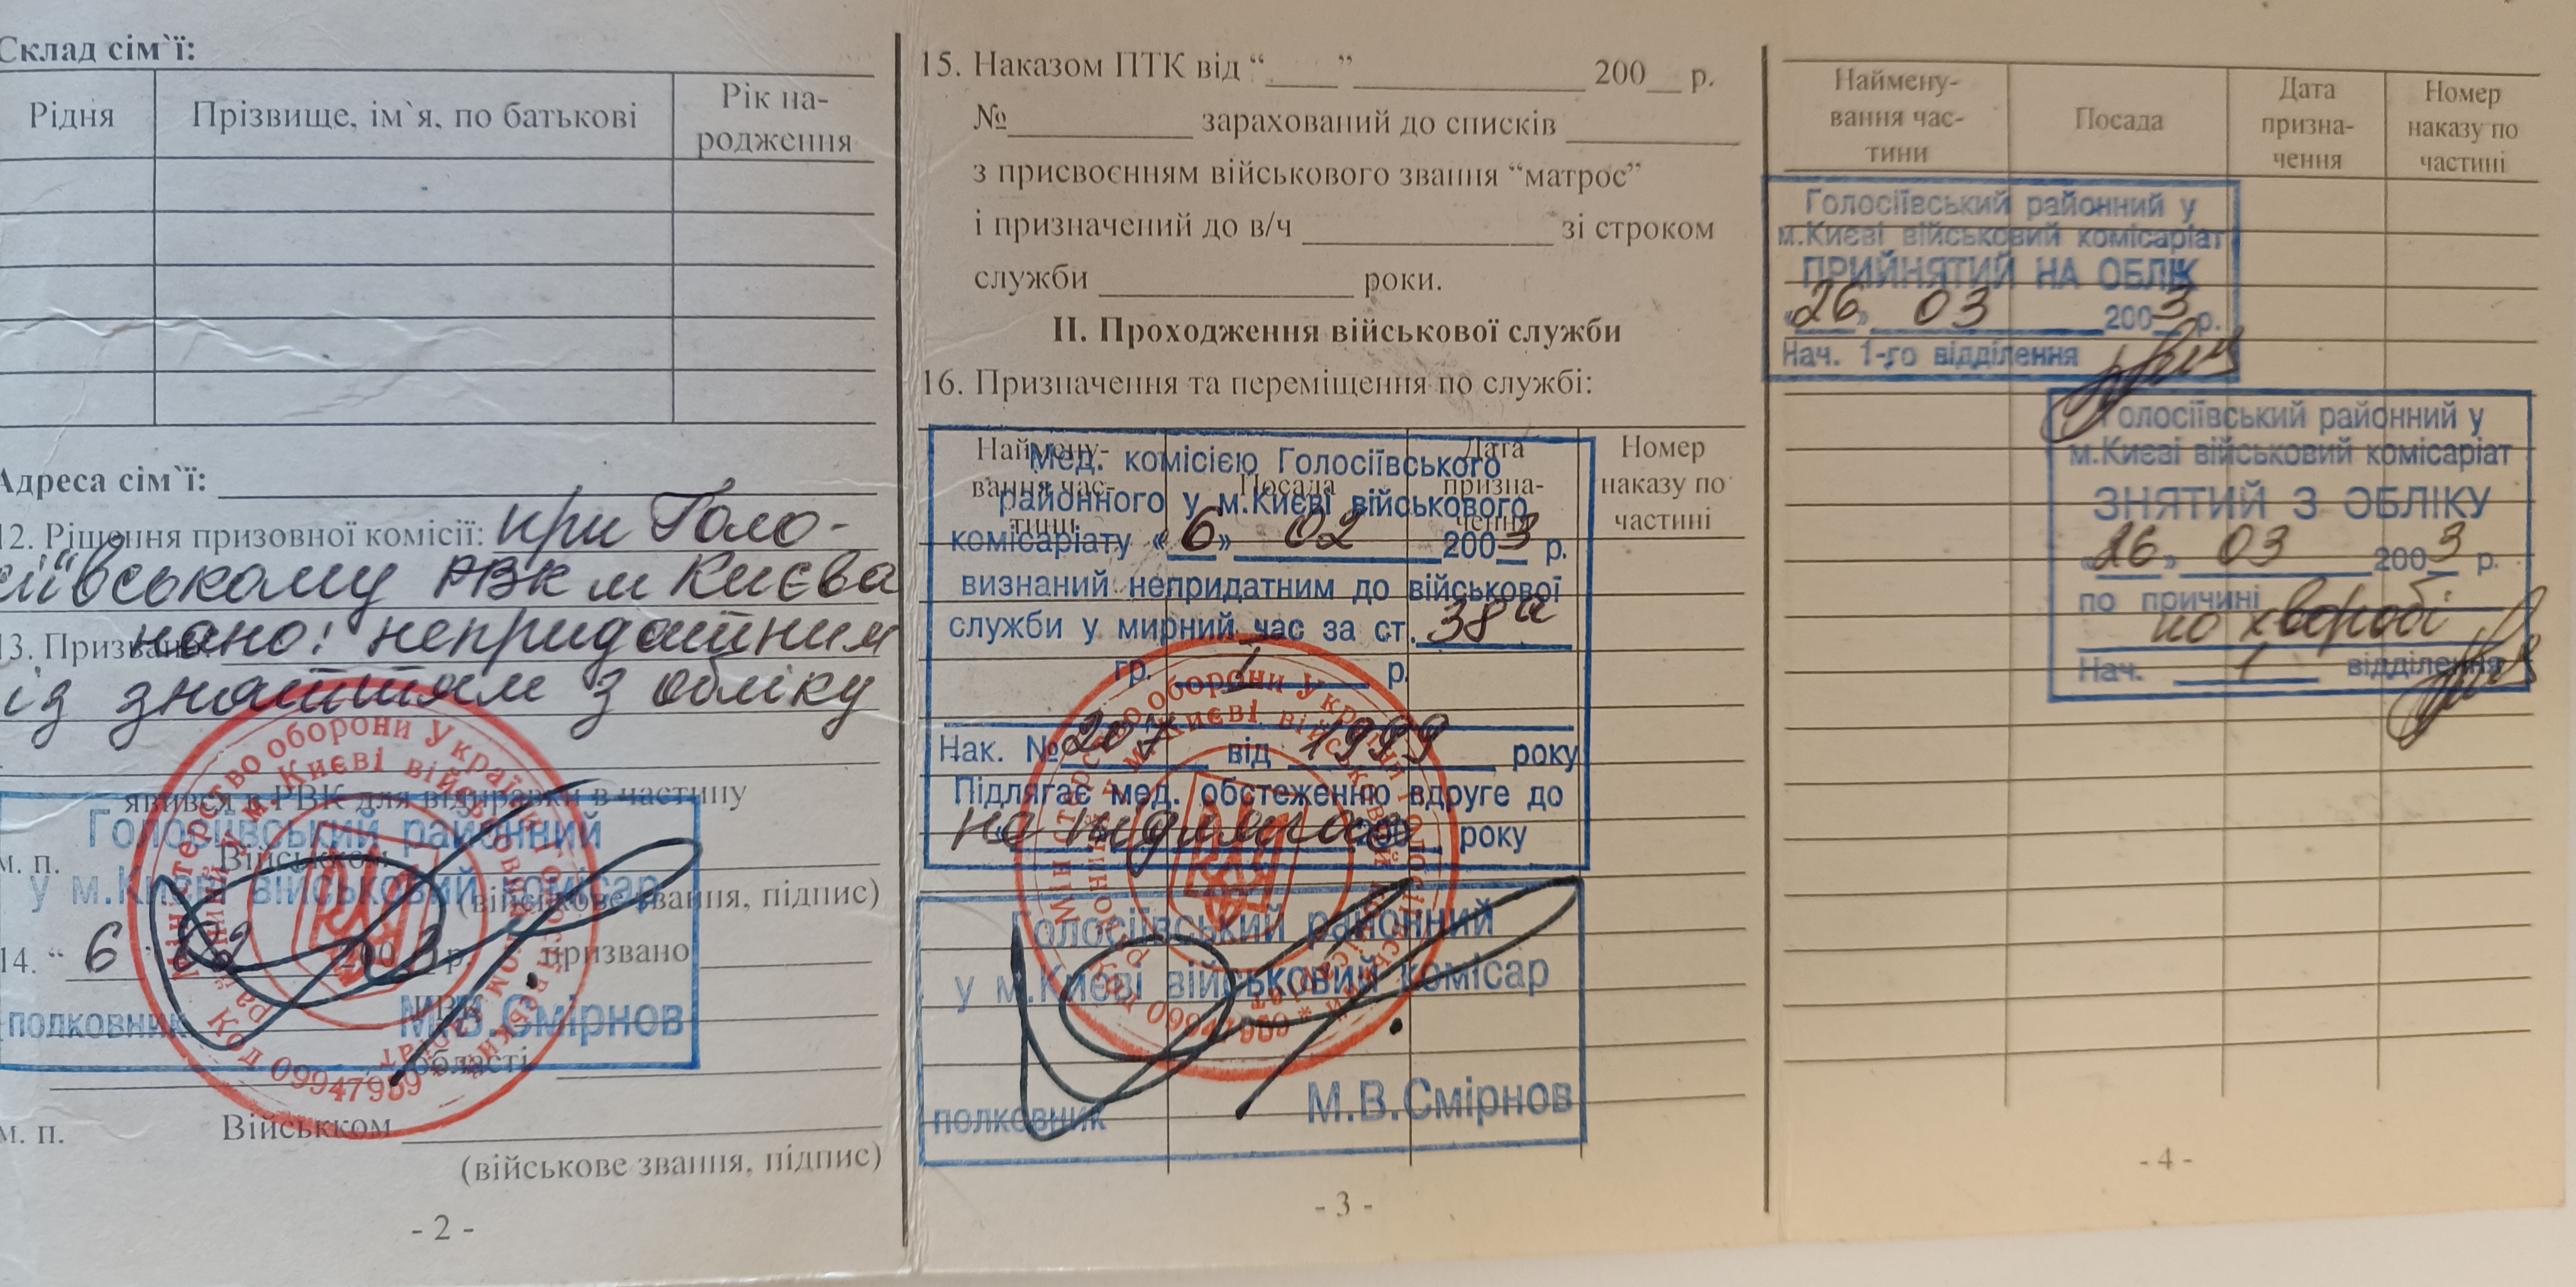 Склад сім`ї:
Рідня
Прізвище, ім`я, по батькові
Рік на-
родження
Адреса сім`ї:
12. Рішення призовної комісії: при Голо-
сіївському РВК м Києва
13. Призвано:
нано: непридатним
із зняттям з обліку
явився в РВК для відправки в частину
Голосіївський районний
м. п. Військком
у м.Києві військовий комісар
(військове звання, підпис)
14. “ 6 02 200 3 р. призвано
РВК
полковник М.В.Смірнов
області
м. п. Військком
(військове звання, підпис)
Міністерство оборони України
Код 09947959
- 2 -
15. Наказом ПТК від “ ” 200 р.
№ зарахований до списків
з присвоєнням військового звання “матрос”
і призначений до в/ч зі строком
служби роки.
II. Проходження військової служби
16. Призначення та переміщення по службі:
Наймену-
вання час-
тини
Посада
Дата
призна-
чення
Номер
наказу по
частині
Мед. комісією Голосіївського
районного у м.Києві військового
комісаріату «6» 02 2003 р.
визнаний непридатним до військової
служби у мирний час за ст. 38а
гр. I р.
Нак. № 207 від 1999 року
Підлягає мед. обстеженню вдруге до
не підлягає 200 року
Міністерство оборони України
Голосіївський районний
у м.Києві військовий комісар
полковник М.В.Смірнов
- 3 -
Наймену-
вання час-
тини
Посада
Дата
призна-
чення
Номер
наказу по
частині
Голосіївський районний у
м.Києві військовий комісаріат
ПРИЙНЯТИЙ НА ОБЛІК
«26» 03 2003 р.
Нач. 1-го відділення
Голосіївський районний у
м.Києві військовий комісаріат
ЗНЯТИЙ З ОБЛІКУ
«26» 03 2003 р.
по причині
по хворобі
Нач. 1 відділення
- 4 -